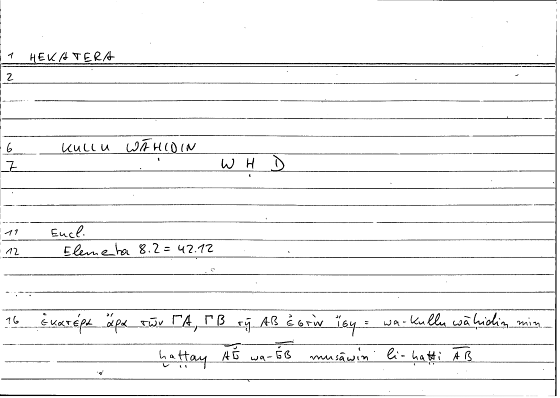 1 HEKATERA
2
6 KULLU WĀḤIDIN
7 W Ḥ D
11 Eucl.
12 Elementa 8.2 = 42.12
16 ἑκατέρα ἄρα τῶν ΓΑ, ΓΒ τῇ ΑΒ ἐστὶν ἴση = wa-kullu wāḥidin min
ḫaṭṭay A͞Ǧ wa-Ǧ͞B musāwin li-ḫaṭṭi A͞B